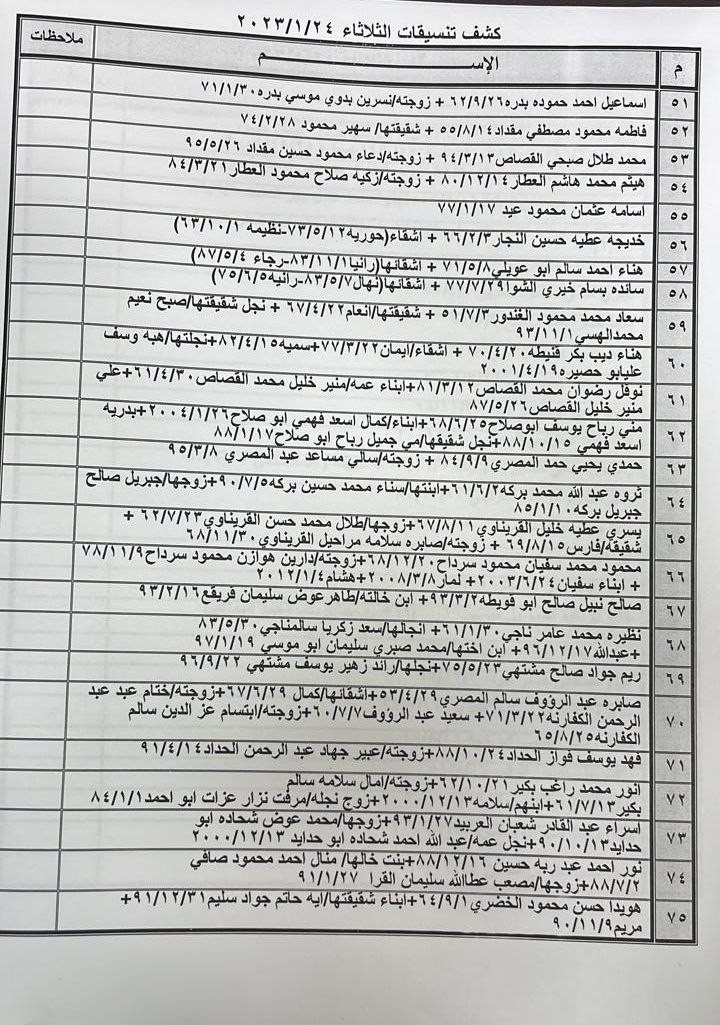 كشف تنسيقات الثلاثاء ٢٠٢٣/١/٢٤
م الإســـم ملاحظات
٥١ اسماعيل احمد حموده بدره٦٢/٩/٢٦ + زوجته/نسرين بدوي موسي بدره٧١/١/٣٠
٥٢ فاطمه محمود مصطفي مقداد٥٥/٨/١٤ + شقيقتها/ سهير محمود ٧٤/٢/٢٨
٥٣ محمد طلال صبحي القصاص٩٤/٣/١٣ + زوجته/دعاء محمود حسين مقداد ٩٥/٥/٢٦
٥٤ هيثم محمد هاشم العطار٨٠/١٢/١٤ + زوجته/زكيه صلاح محمود العطار٨٤/٣/٢١
٥٥ اسامه عثمان محمود عيد ٧٧/١/١٧
٥٦ خديجه عطيه حسين النجار٦٦/٢/٣ + اشقاء(حوريه٧٣/٥/١٢-نظيمه ٦٣/١٠/١)
٥٧ هناء احمد سالم ابو عويلي٧١/٥/٨ + اشقائها(رانيا٨٣/١١/١-رجاء ٨٧/٥/٤)
٥٨ سانده بسام خيري الشوا٧٧/٧/٢٩ + اشقائها(نهال٨٣/٥/٧-رانيه٧٥/٦/٥)
٥٩ سعاد محمد محمود الغندور٥١/٧/٣ + شقيقتها/انعام٦٧/٤/٢٢ + نجل شقيقتها/صبح نعيم
محمدالهسي٩٣/١١/١
٦٠ هناء ديب بكر قنيطه٧٠/٤/٢٠ + اشقاء/ايمان٧٧/٣/٢٢+سميه٨٢/٤/١٥+نجلتها/هبه وسف
عليابو حصيره٢٠٠١/٤/١٩
٦١ نوفل رضوان محمد القصاص٨١/٣/١٢+ابناء عمه/منير خليل محمد القصاص٦١/٤/٣٠+علي
منير خليل القصاص٨٧/٥/٢٦
٦٢ مني رباح يوسف ابوصلاح٦٨/٦/٢٥+ابناء/كمال اسعد فهمي ابو صلاح٢٠٠٤/١/٢٦+بدريه
اسعد فهمي ٨٨/١٠/١٥+نجل شقيقها/مي جميل رباح ابو صلاح٨٨/١/١٧
٦٣ حمدي يحيي حمد المصري٨٤/٩/٩ + زوجته/سالي مساعد عبد المصري ٩٥/٣/٨
٦٤ ثروه عبد الله محمد بركه٦١/٦/٢+ابنتها/سناء محمد حسين بركه٩٠/٧/٥+زوجها/جبريل صالح
جبريل بركه٨٥/١/١٠
٦٥ يسري عطيه خليل القريناوي٦٧/٨/١١+زوجها/طلال محمد حسن القريناوي٦٢/٧/٢٣ +
شقيقه/فارس٦٩/٨/١٥ + زوجته/صابره سلامه مراحيل القريناوي٦٨/١١/٣٠
٦٦ محمود محمد سفيان محمود سرداح٦٨/١٢/٢٠+زوجته/دارين هوازن محمود سرداح٧٨/١١/٩
+ ابناء سفيان٢٠٠٣/٦/٢٤+ لمار٢٠٠٨/٣/٨+هشام٢٠١٢/١/٤
٦٧ صالح نبيل صالح ابو قويطه٩٣/٣/٢+ ابن خالته/طاهرعوض سليمان قريقع٩٣/٢/١٦
٦٨ نظيره محمد عامر ناجي٦١/١/٣٠+ انجالها/سعد زكريا سالمناجي٨٣/٥/٣٠
+عبدالله٩٦/١٢/١٧+ ابن اختها/محمد صبري سليمان ابو موسي ٩٧/١/١٩
٦٩ ريم جواد صالح مشتهي٧٥/٥/٢٣+نجلها/رائد زهير يوسف مشتهي ٩٦/٩/٢٢
٧٠ صابره عبد الرؤوف سالم المصري٥٣/٤/٢٩+اشقائها/كمال ٦٧/٦/٢٩+زوجته/ختام عبد عبد
الرحمن الكفارنه٧١/٣/٢٢+ سعيد عبد الرؤوف٦٠/٧/٧+زوجته/ابتسام عز الدين سالم
الكفارنه٦٥/٨/٢٥
٧١ فهد يوسف فواز الحداد٨٨/١٠/٢٤+زوجته/عبير جهاد عبد الرحمن الحداد٩١/٤/١٤
٧٢ انور محمد راغب بكير٦٢/١٠/٢١+زوجته/امال سلامه سالم
بكير٦١/٧/١٣+ابنهم/سلامه٢٠٠٠/١٢/١٣+زوج نجله/مرفت نزار عزات ابو احمد٨٤/١/١
٧٣ اسراء عبد القادر شعبان العربيد٩٣/١/٢٧+زوجها/محمد عوض شحاده ابو
حدايد٩٠/١٠/١٣+نجل عمه/عبد الله احمد شحاده ابو حدايد ٢٠٠٠/١٢/١٣
٧٤ نور احمد عبد ربه حسين ٨٨/١٢/١٦+بنت خالها/ منال احمد محمود صافي
٨٨/٧/٢+زوجها/مصعب عطاالله سليمان القرا ٩١/١/٢٧
٧٥ هويدا حسن محمود الخضري٦٤/٩/١+ابناء شقيقتها/ايه حاتم جواد سليم٩١/١٢/٣١+
مريم٩٠/١١/٩